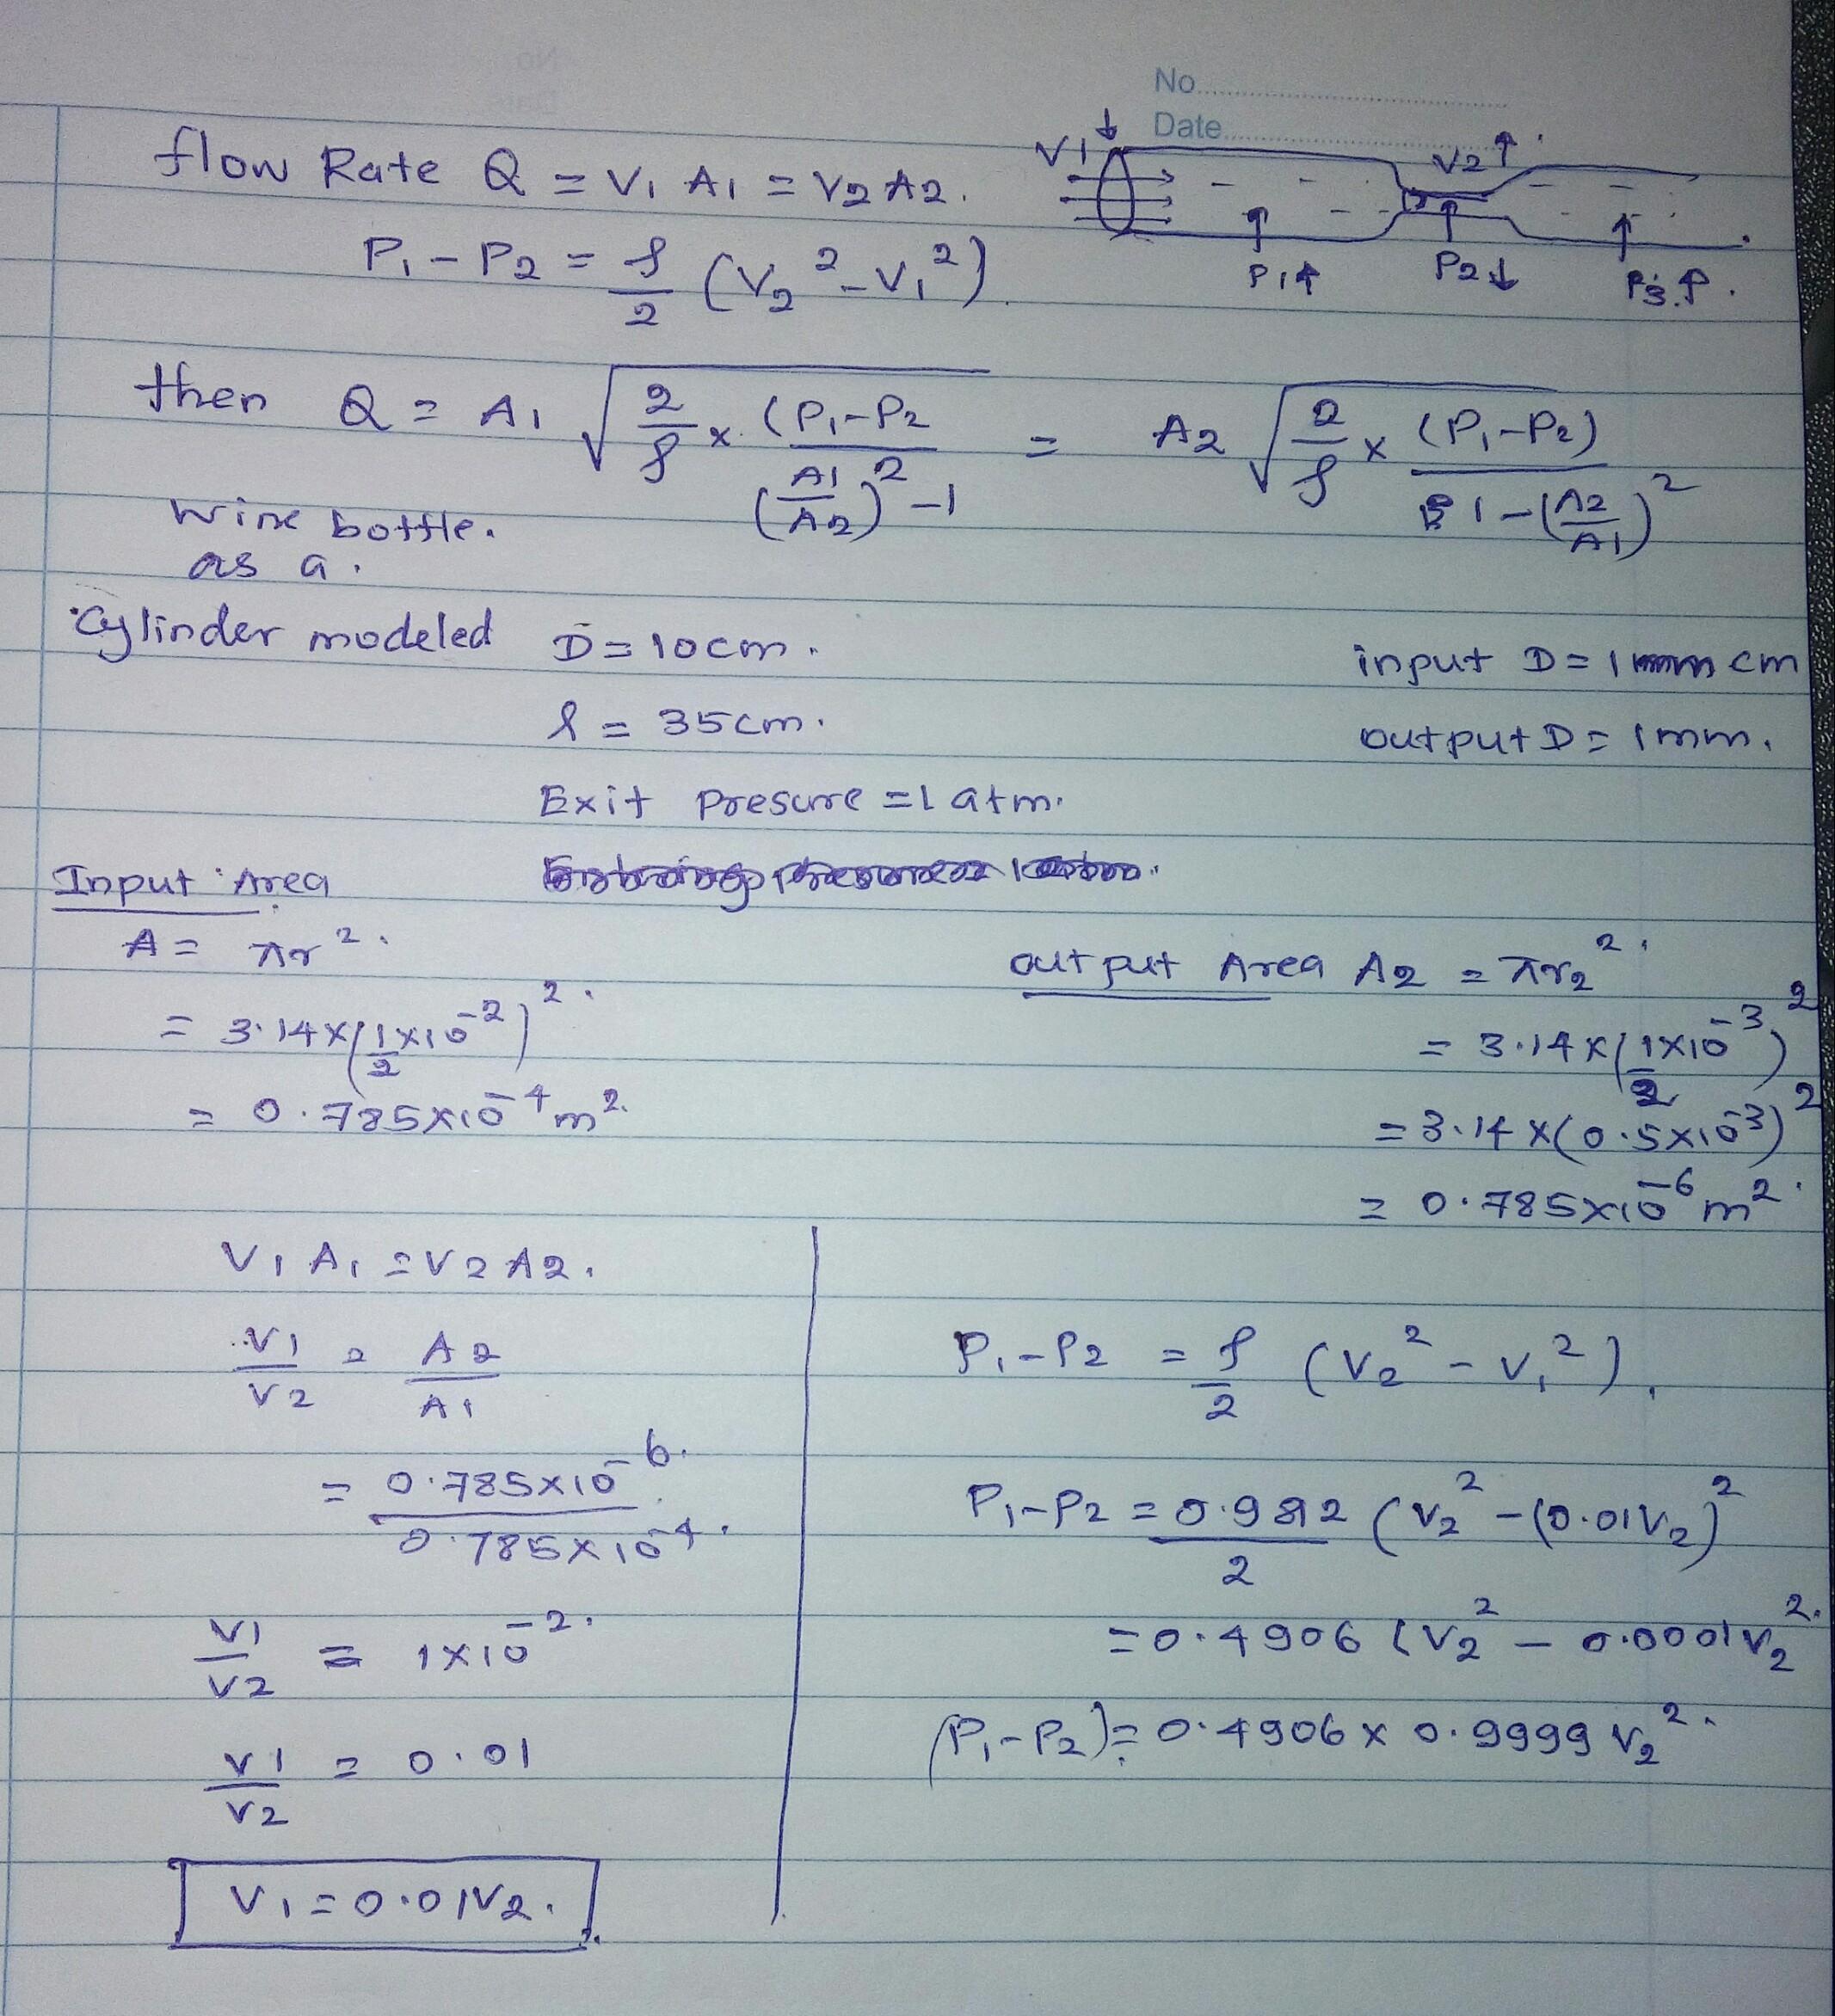 No..............
Date..............
flow Rate Q = V1 A1 = V2 A2.
V1 ↓ V2 ↑
P1 ↑ P2 ↓ P3 ↑.
P1 - P2 = ρ/2 (V2² - V1²).
then Q = A1 √(2/ρ x (P1-P2 / (A1/A2)² - 1) = A2 √(2/ρ x (P1-P2) / 1 - (A2/A1)²)
wine bottle.
as a.
Cylinder modeled D = 10cm.
input D = 1 cm
l = 35cm.
output D = 1mm.
Exit Presure = 1 atm.
Input Area
A = πr².
= 3.14 x (1/2 x10⁻²)².
= 0.785x10⁻⁴ m².
output Area A2 = πr2².
= 3.14 x (1/2 x10⁻³)²
= 3.14 x (0.5x10⁻³)²
= 0.785x10⁻⁶ m².
V1 A1 = V2 A2.
V1/V2 = A2/A1
= 0.785x10⁻⁶ / 0.785x10⁻⁴.
V1/V2 = 1x10⁻².
V1/V2 = 0.01
V1 = 0.01V2.
P1 - P2 = ρ/2 (V2² - V1²).
P1 - P2 = /2 (V2² - (0.01V2)²
= 0.4906 (V2² - 0.0001V2².
(P1 - P2) = 0.4906 x 0.9999 V2².